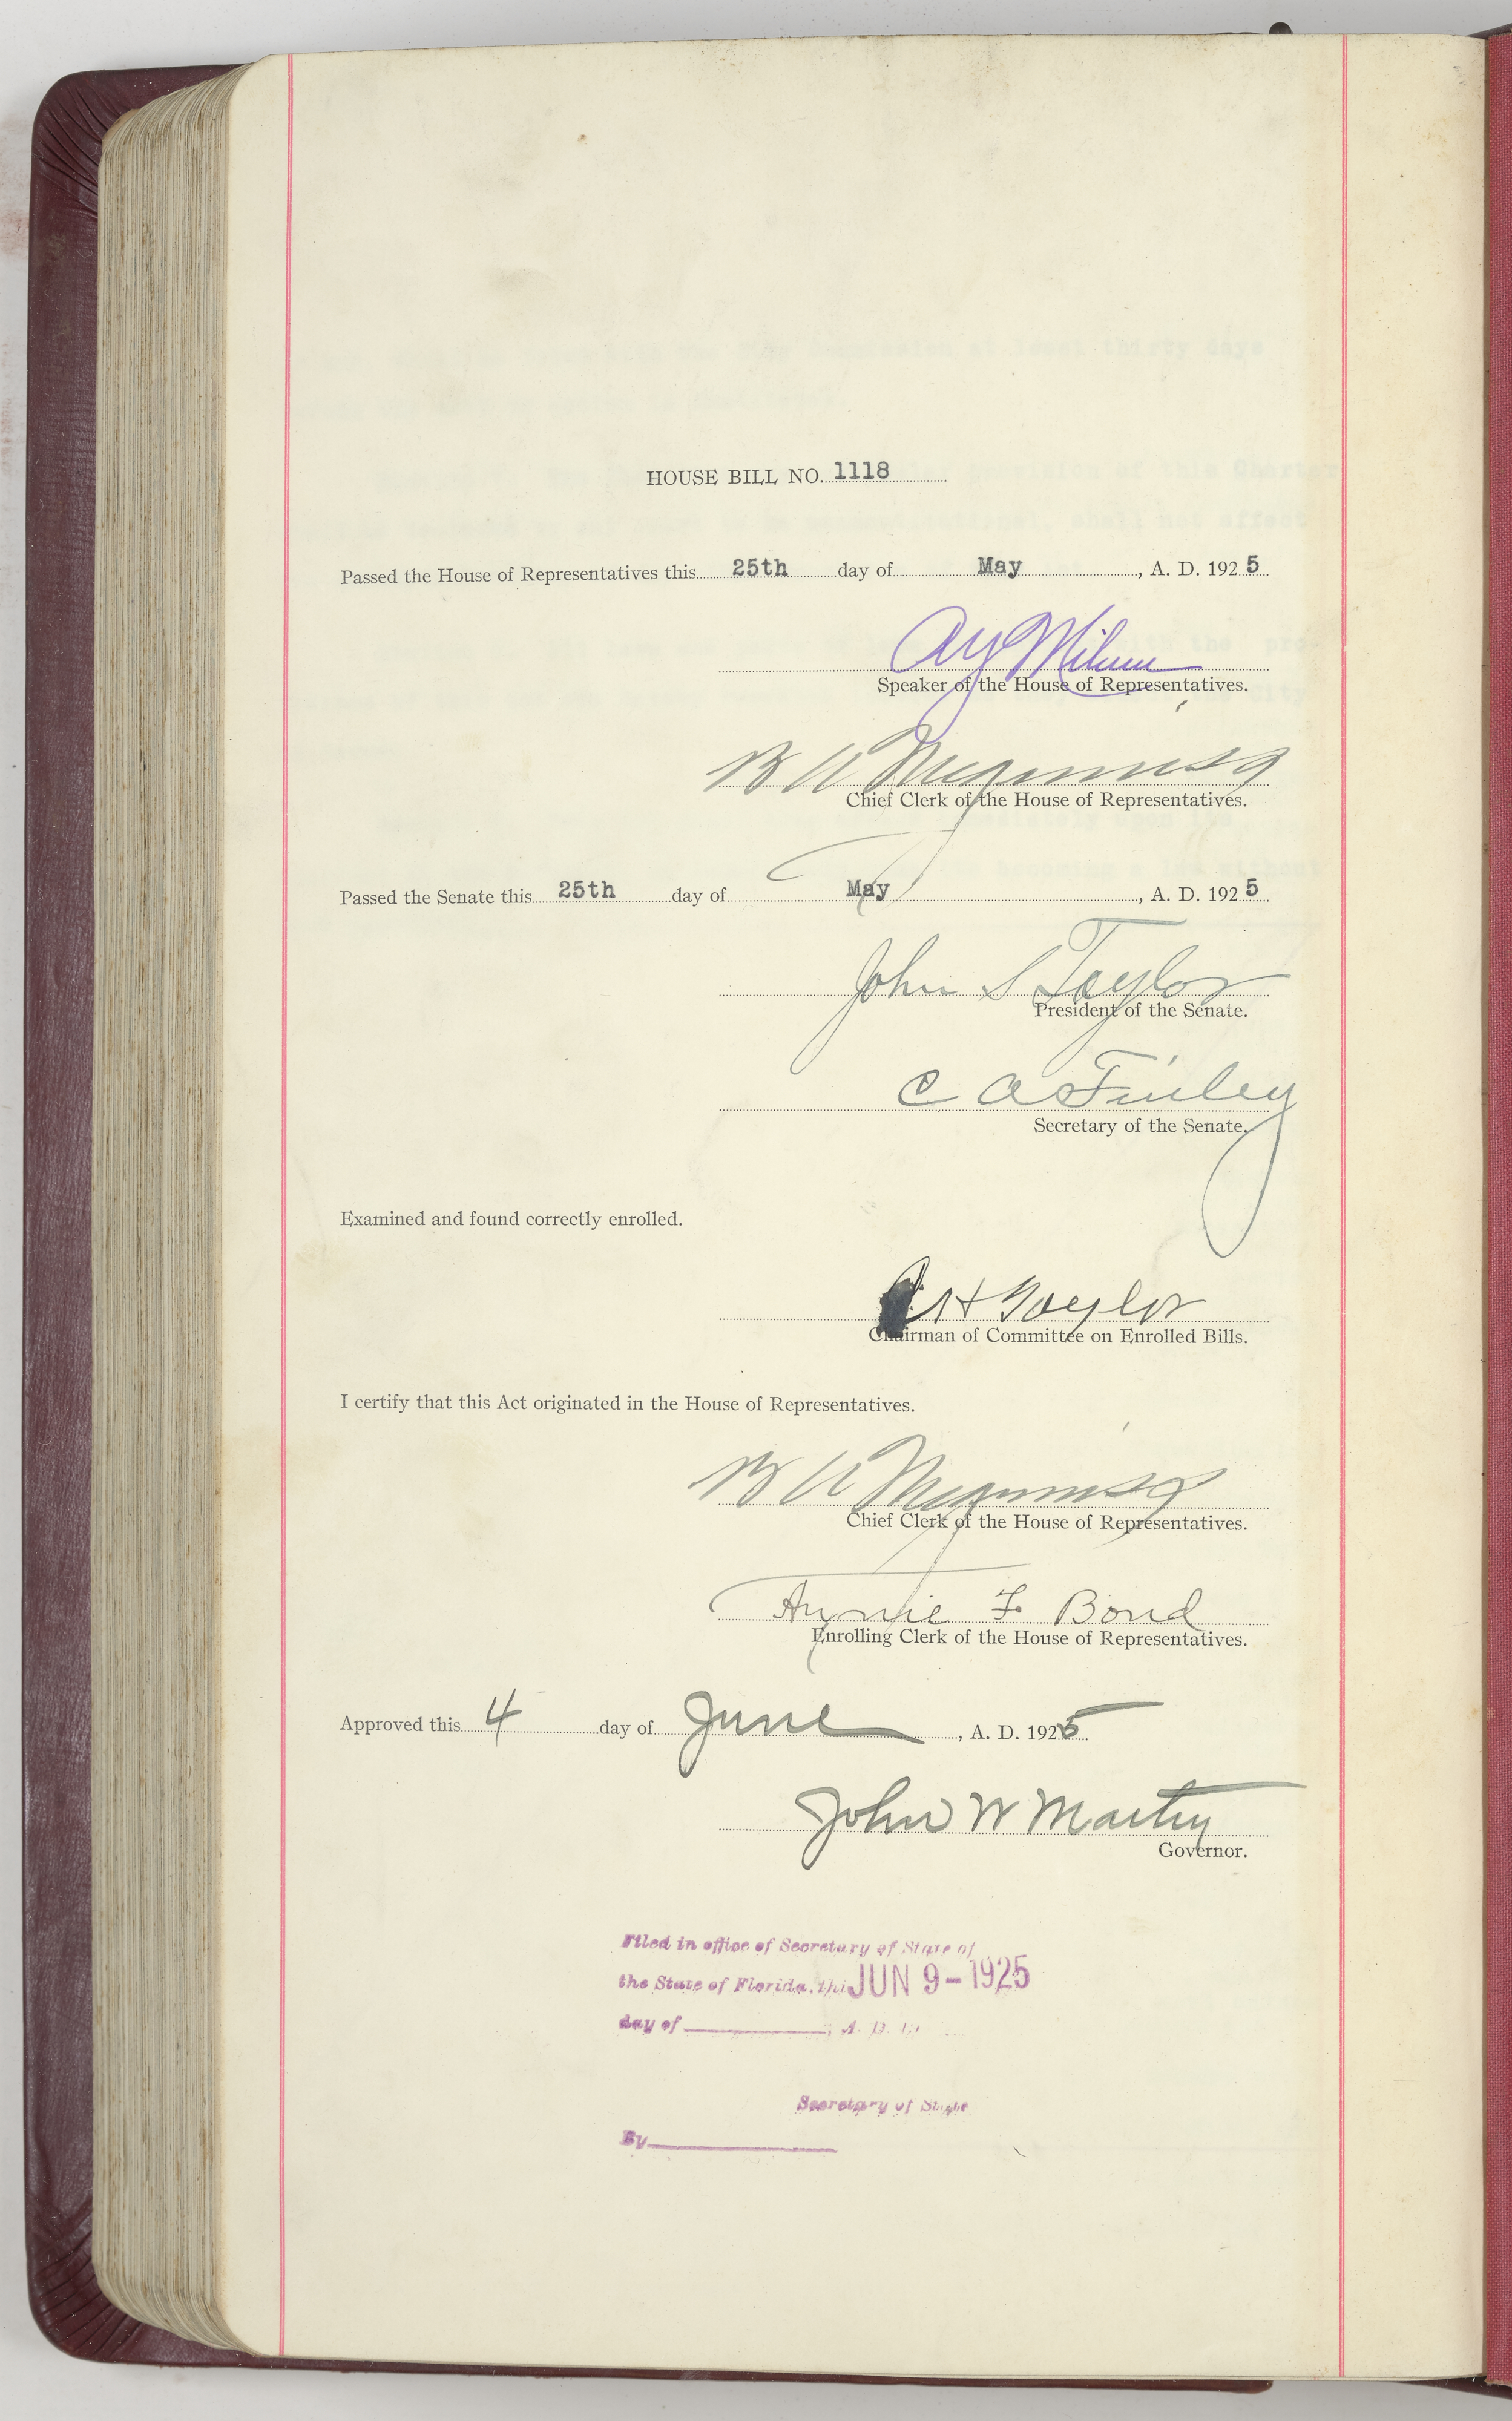 HOUSE BILL NO. 1118
Passed the House of Representatives this 25th day of May, A. D. 1925
A Y Milam
Speaker of the House of Representatives.
B A Meginniss
Chief Clerk of the House of Representatives.
Passed the Senate this 25th day of May, A. D. 1925
John S Taylor
President of the Senate.
C A Finley
Secretary of the Senate.
Examined and found correctly enrolled.
H Taylor
Chairman of Committee on Enrolled Bills.
I certify that this Act originated in the House of Representatives.
B A Meginniss
Chief Clerk of the House of Representatives.
Annie F. Bond
Enrolling Clerk of the House of Representatives.
Approved this 4 day of June, A. D. 1925
John W Martin
Governor.
Filed in office of Secretary of State of
the State of Florida, this JUN 9-1925
day of , A. D. 19
Secretary of State
By